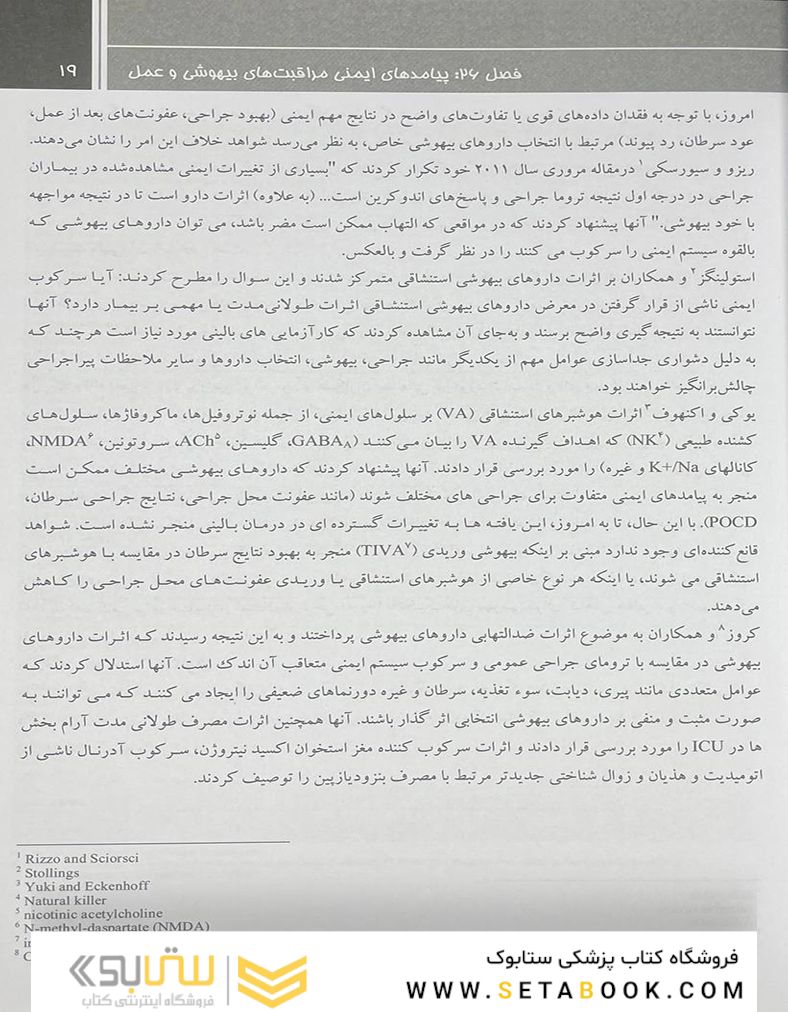 فصل ۲۶: پیامدهای ایمنی مراقبت‌های بیهوشی و عمل
۱۹
امروز، با توجه به فقدان داده‌های قوی یا تفاوت‌های واضح در نتایج مهم ایمنی (بهبود جراحی، عفونت‌های بعد از عمل،
عود سرطان، رد پیوند) مرتبط با انتخاب داروهای بیهوشی خاص، به نظر می‌رسد شواهد خلاف این امر را نشان می‌دهند.
ریزو و سیورسکی۱ درمقاله مروری سال ۲۰۱۱ خود تکرار کردند که "بسیاری از تغییرات ایمنی مشاهده‌شده در بیماران
جراحی در درجه اول نتیجه تروما جراحی و پاسخ‌های اندوکرین است... (به علاوه) اثرات دارو است تا در نتیجه مواجهه
با خود بیهوشی." آنها پیشنهاد کردند که در مواقعی که التهاب ممکن است مضر باشد، می توان داروهای بیهوشی که
بالقوه سیستم ایمنی را سرکوب می کنند را در نظر گرفت و بالعکس.
استولینگز۲ و همکاران بر اثرات داروهای بیهوشی استنشاقی متمرکز شدند و این سوال را مطرح کردند: آیا سرکوب
ایمنی ناشی از قرار گرفتن در معرض داروهای بیهوشی استنشاقی اثرات طولانی‌مدت یا مهمی بر بیمار دارد؟ آنها
نتوانستند به نتیجه‌گیری واضح برسند و به‌جای آن مشاهده کردند که کارآزمایی های بالینی مورد نیاز است هرچند که
به دلیل دشواری جداسازی عوامل مهم از یکدیگر مانند جراحی، بیهوشی، انتخاب داروها و سایر ملاحظات پیراجراحی
چالش‌برانگیز خواهند بود.
یوکی و اکنهوف۳ اثرات هوشبرهای استنشاقی (VA) بر سلول‌های ایمنی، از جمله نوتروفیل‌ها، ماکروفاژها، سلول‌های
کشنده طبیعی (NK۴) که اهداف گیرنده VA را بیان می‌کنند (GABAA، گلیسین، ACh۵، سروتونین، NMDA۶،
کانالهای K+/Na و غیره) را مورد بررسی قرار دادند. آنها پیشنهاد کردند که داروهای بیهوشی مختلف ممکن است
منجر به پیامدهای ایمنی متفاوت برای جراحی های مختلف شوند (مانند عفونت محل جراحی، نتایج جراحی سرطان،
POCD). با این حال، تا به امروز، این یافته ها به تغییرات گسترده ای در درمان بالینی منجر نشده است. شواهد
قانع‌کننده‌ای وجود ندارد مبنی بر اینکه بیهوشی وریدی (TIVA۷) منجر به بهبود نتایج سرطان در مقایسه با هوشبرهای
استنشاقی می شوند، یا اینکه هر نوع خاصی از هوشبرهای استنشاقی یا وریدی عفونت‌های محل جراحی را کاهش
می‌دهند.
کروز۸ و همکاران به موضوع اثرات ضدالتهابی داروهای بیهوشی پرداختند و به این نتیجه رسیدند که اثرات داروهای
بیهوشی در مقایسه با ترومای جراحی عمومی و سرکوب سیستم ایمنی متعاقب آن اندک است. آنها استدلال کردند که
عوامل متعددی مانند پیری، دیابت، سوء تغذیه، سرطان و غیره دورنماهای ضعیفی را ایجاد می کنند که می توانند به
صورت مثبت و منفی بر داروهای بیهوشی انتخابی اثر گذار باشند. آنها همچنین اثرات مصرف طولانی مدت آرام بخش
ها در ICU را مورد بررسی قرار دادند و اثرات سرکوب کننده مغز استخوان اکسید نیتروژن، سرکوب آدرنال ناشی از
اتومیدیت و هذیان و زوال شناختی جدیدتر مرتبط با مصرف بنزودیازپین را توصیف کردند.
1 Rizzo and Sciorsci
2 Stollings
3 Yuki and Eckenhoff
4 Natural killer
5 nicotinic acetylcholine
6 N-methyl-daspartate (NMDA)
7
8
فروشگاه کتاب پزشکی ستابوک
WWW.SETABOOK.COM
ستابوک
فروشگاه اینترنتی کتاب